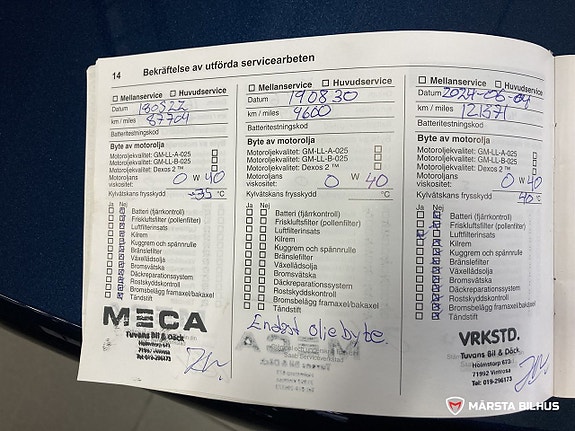 14 Bekräftelse av utförda servicearbeten
Mellanservice Huvudservice
Datum 180522
km / miles 87704
Batteritestningskod
Byte av motorolja
Motoroljekvalitet: GM-LL-A-025
Motoroljekvalitet: GM-LL-B-025
Motoroljekvalitet: Dexos 2 ™
Motoroljans
viskositet: 0 W 40
Kylvätskans frysskydd -35 °C
Ja Nej
Batteri (fjärrkontroll)
Friskluftsfilter (pollenfilter)
Luftfilterinsats
Kilrem
Kuggrem och spännrulle
Bränslefilter
Växellådsolja
Bromsvätska
Däckreparationssystem
Rostskyddskontroll
Bromsbelägg framaxel/bakaxel
Tändstift
MECA
Tuvans Bil & Däck
Holmstorp 673
71992 Vintrosa
Tel: 019-296173
Mellanservice Huvudservice
Datum 190830
km / miles 9600
Batteritestningskod
Byte av motorolja
Motoroljekvalitet: GM-LL-A-025
Motoroljekvalitet: GM-LL-B-025
Motoroljekvalitet: Dexos 2 ™
Motoroljans
viskositet: 0 W 40
Kylvätskans frysskydd °C
Ja Nej
Batteri (fjärrkontroll)
Friskluftsfilter (pollenfilter)
Luftfilterinsats
Kilrem
Kuggrem och spännrulle
Bränslefilter
Växellådsolja
Bromsvätska
Däckreparationssystem
Rostskyddskontroll
Bromsbelägg framaxel/bakaxel
Tändstift
Endast oljebyte.
Mellanservice Huvudservice
Datum 2024-06-04
km / miles 121371
Batteritestningskod
Byte av motorolja
Motoroljekvalitet: GM-LL-A-025
Motoroljekvalitet: GM-LL-B-025
Motoroljekvalitet: Dexos 2 ™
Motoroljans
viskositet: 0 W 40
Kylvätskans frysskydd 40 °C
Ja Nej
Batteri (fjärrkontroll)
Friskluftsfilter (pollenfilter)
Luftfilterinsats
Kilrem
Kuggrem och spännrulle
Bränslefilter
Växellådsolja
Bromsvätska
Däckreparationssystem
Rostskyddskontroll
Bromsbelägg framaxel/bakaxel
Tändstift
VRKSTD.
Tuvans Bil & Däck
Holmstorp 673
71992 Vintrosa
Tel: 019-296173
MÄRSTA BILHUS